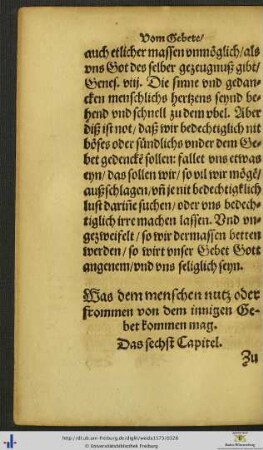 Vom Gebete/
auch etlicher massen vnmöglich/als
vns Got des selber gezeugnuß gibt/
Genes. viij. Die sinne vnd gedan-
cken menschlichs hertzens seynd be-
hend vnd schnell zu dem vbel. Aber
diß ist not/daß wir bedechtiglich nit
böses oder sündlichs vnder dem Ge-
bet gedencke sollen: fallet vns etwas
eyn/das sollen wir/so vil wir mögē/
außschlagen/vñ je nit bedechtigklich
lust dariñe suchen/oder vns bedech-
tiglich irre machen lassen. Vnd vn-
gezweifelt/so wir dermassen betten
werden/so wirt vnser Gebet Gott
angenem/vnd vns seliglich seyn.
Was dem menschen nutz oder
frommen von dem innigen Ge-
bet kommen mag.
Das sechst Capitel.
Zu
© Universitätsbibliothek Freiburg